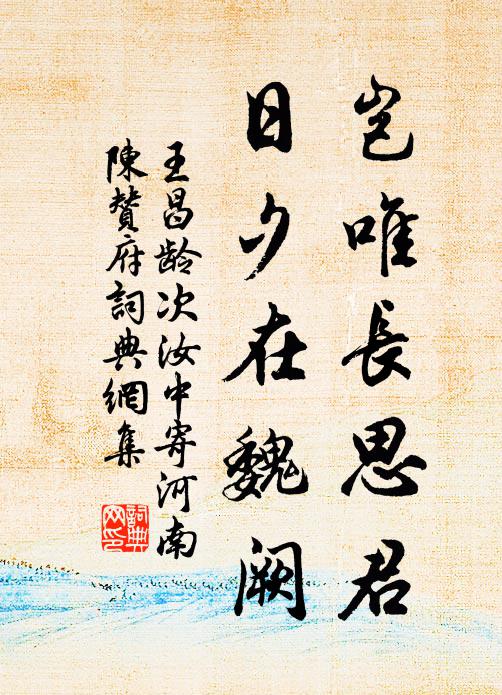 豈唯長思君
日夕在魏闕
王昌龄次汝中寄河南
陳贊府詞典網集
詞典
网印